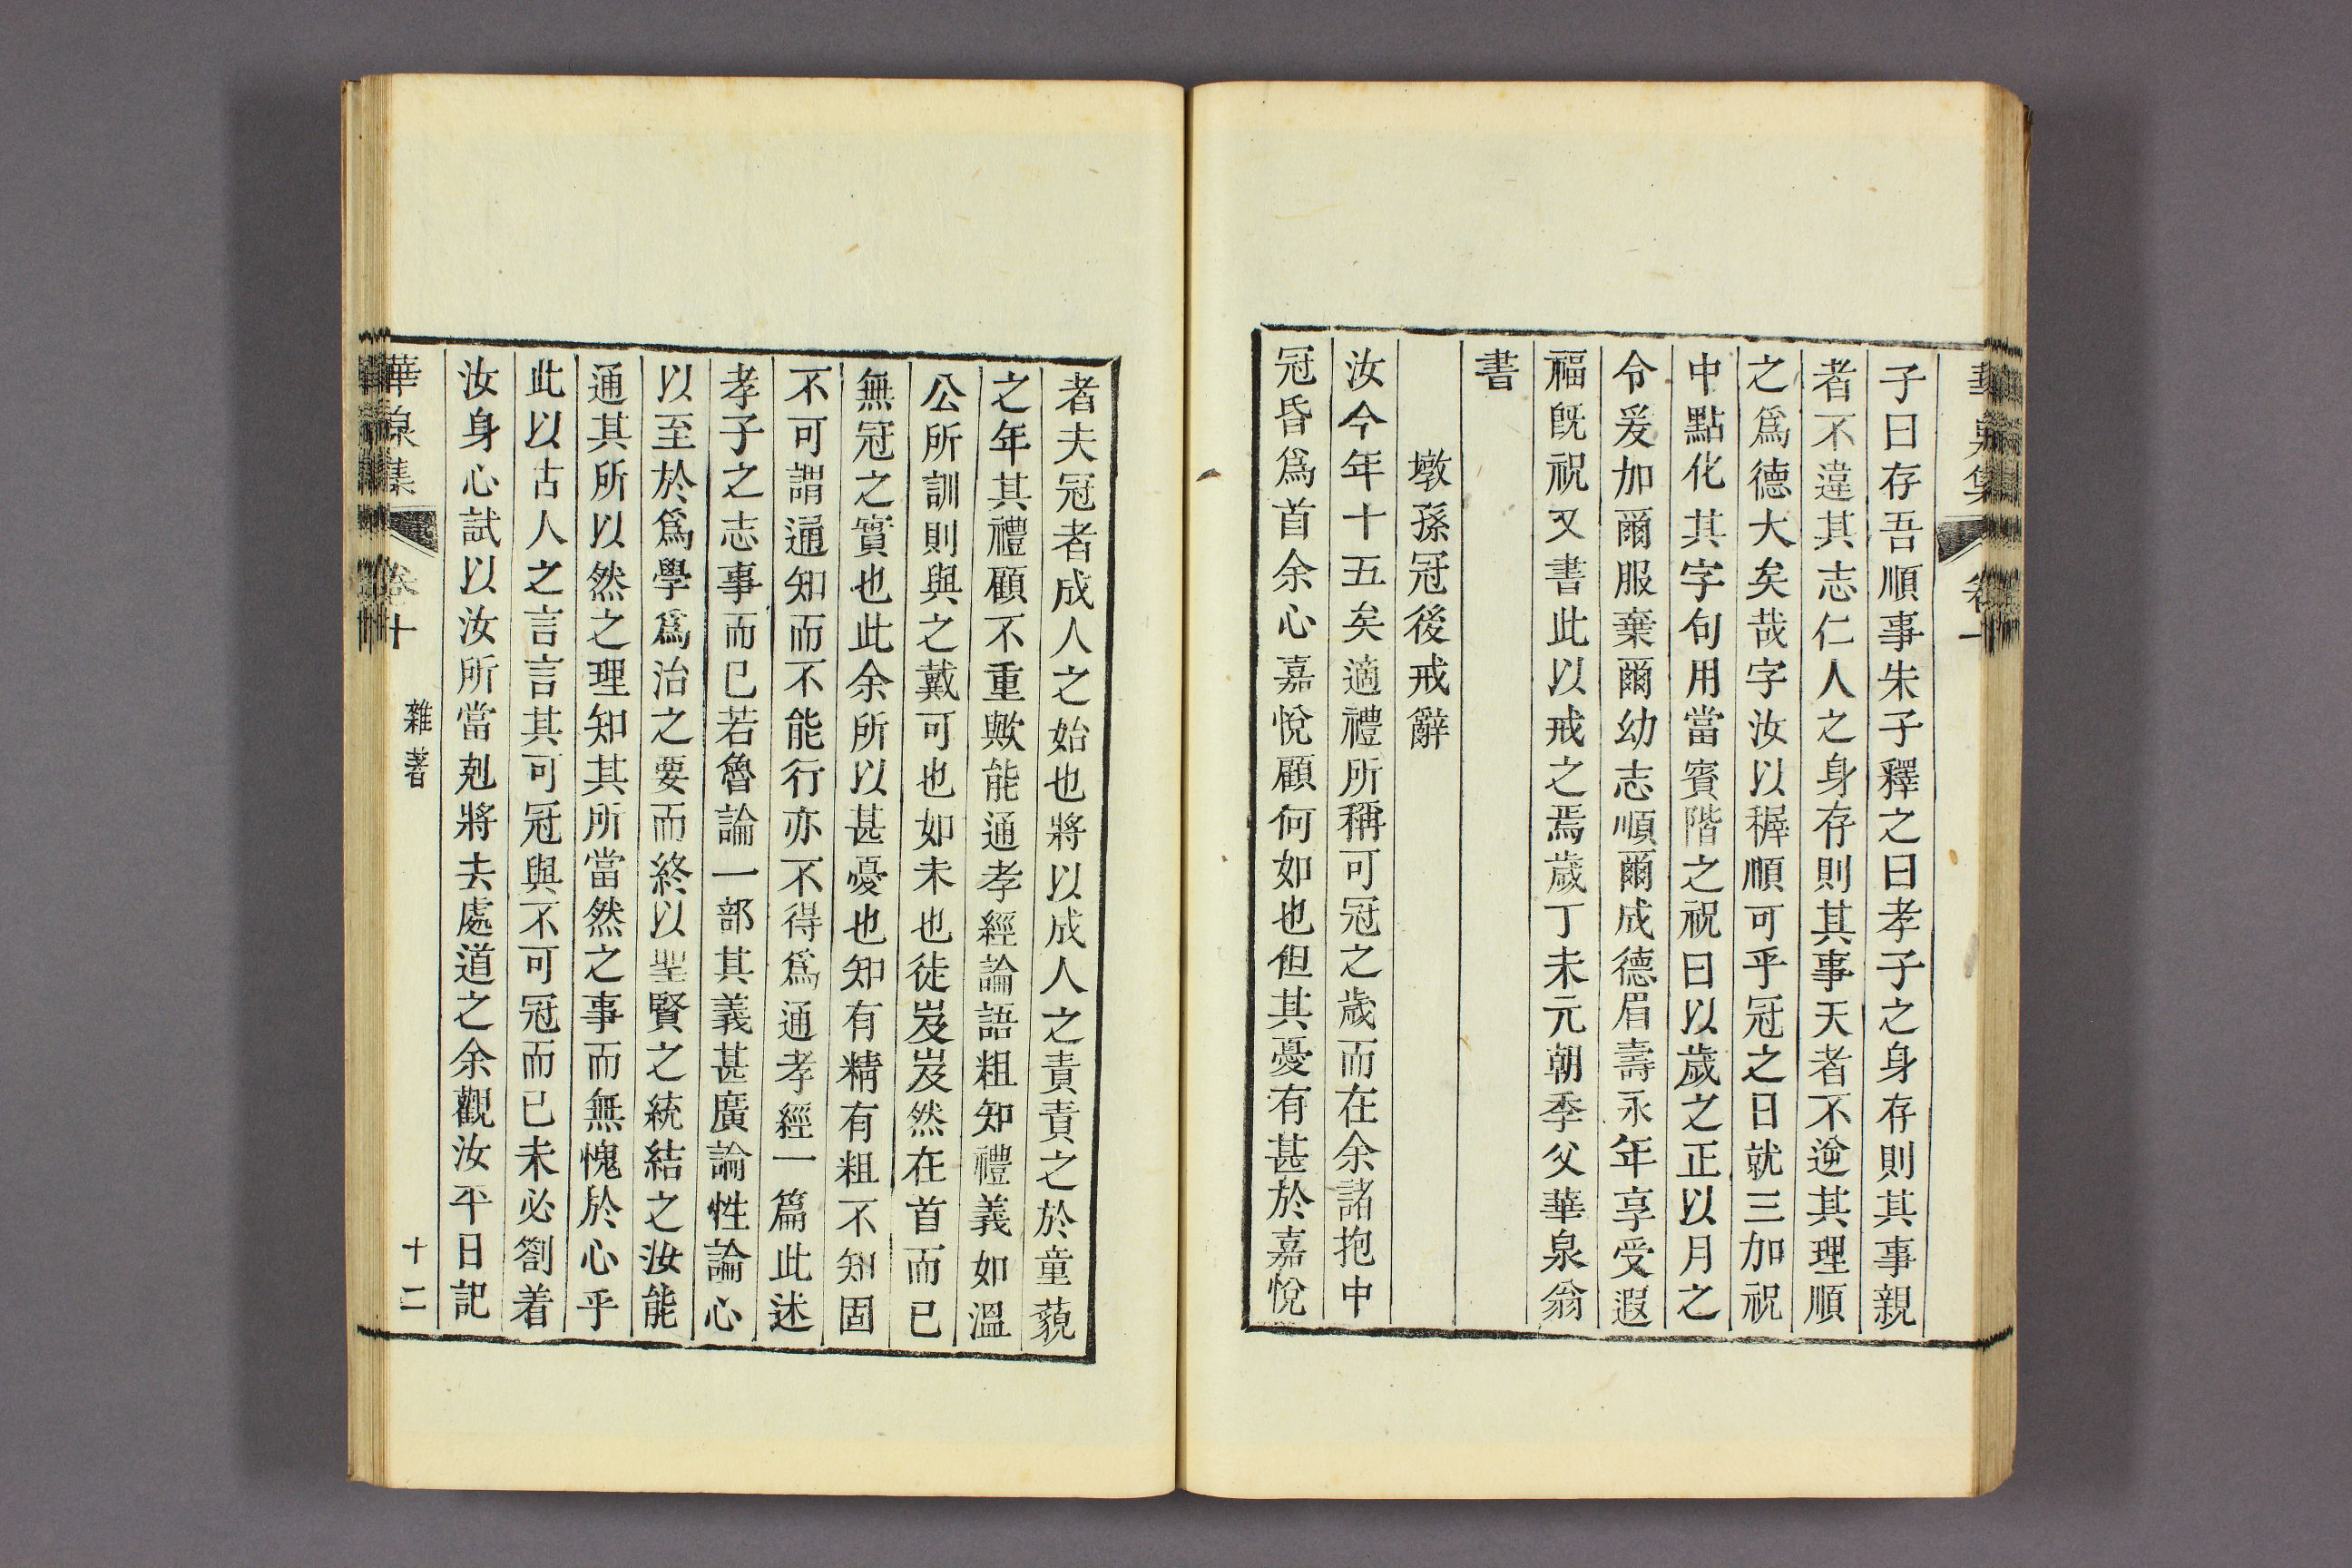 子曰存吾順事朱子釋之曰孝子之身存則其事親
者不違其志仁人之身存則其事天者不逆其理順
之爲德大矣哉字汝以穉順可乎冠之日就三加祝
中點化其字句用當賓階之祝曰以歲之正以月之
令爰加爾服棄爾幼志順爾成德眉壽永年享受遐
福旣祝又書此以戒之焉歲丁未元朝季父華泉翁
書
墩孫冠後戒辭
汝今年十五矣適禮所稱可冠之歲而在余諸抱中
冠昏爲首余心嘉悅顧何如也但其憂有甚於嘉悅
者夫冠者成人之始也將以成人之責責之於童藐
之年其禮顧不重歟能通孝經論語粗知禮義如溫
公所訓則與之戴可也如未也徒岌岌然在首而已
無冠之實也此余所以甚憂也知有精有粗不知固
不可謂通知而不能行亦不得爲通孝經一篇此述
孝子之志事而已若魯論一部其義甚廣論性論心
以至於爲學爲治之要而終以聖賢之統結之汝能
通其所以然之理知其所當然之事而無愧於心乎
此以古人之言言其可冠與不可冠而已未必劄着
汝身心試以汝所當剋將去處道之余觀汝平日記
華泉集 卷十 雜著 十二